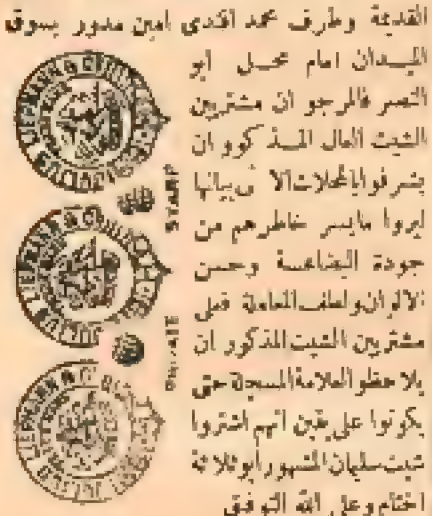 القديمة وطرف محمد افندى امين مدور بسوق
الميدان امام محل ابو
النصر فالمرجو ان مشتريين
الشيت العال المذكوران
يشرفوا بالمحلات الا تى بيانها
ليروا مايسر خاطرهم من
جودة البضاعة وحسن
الالوان ولطف المعاملة فعلى
مشتريين الشيت المذكور ان
يلاحظو العلامة المسجلة حتى
يكونوا على يقين انهم اشتروا
شيت سليمان المشهور ابو ثلاثة
اختام وعلى الله التوفيق
LIEPMANN &
LIEPMANN &
LIEPMANN &
PRIVATE STAMP